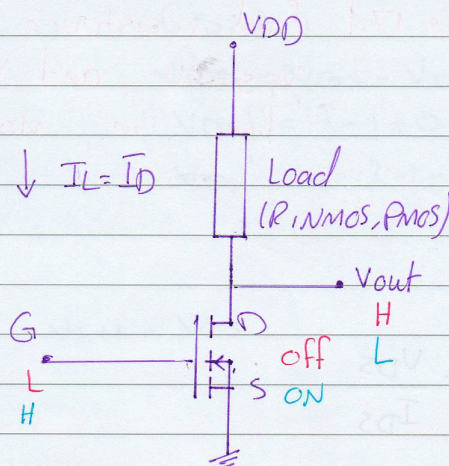 VDD
↓ IL = ID
Load
(R, NMOS, PMOS)
Vout
H
L
G
L
H
D
Off
S
ON